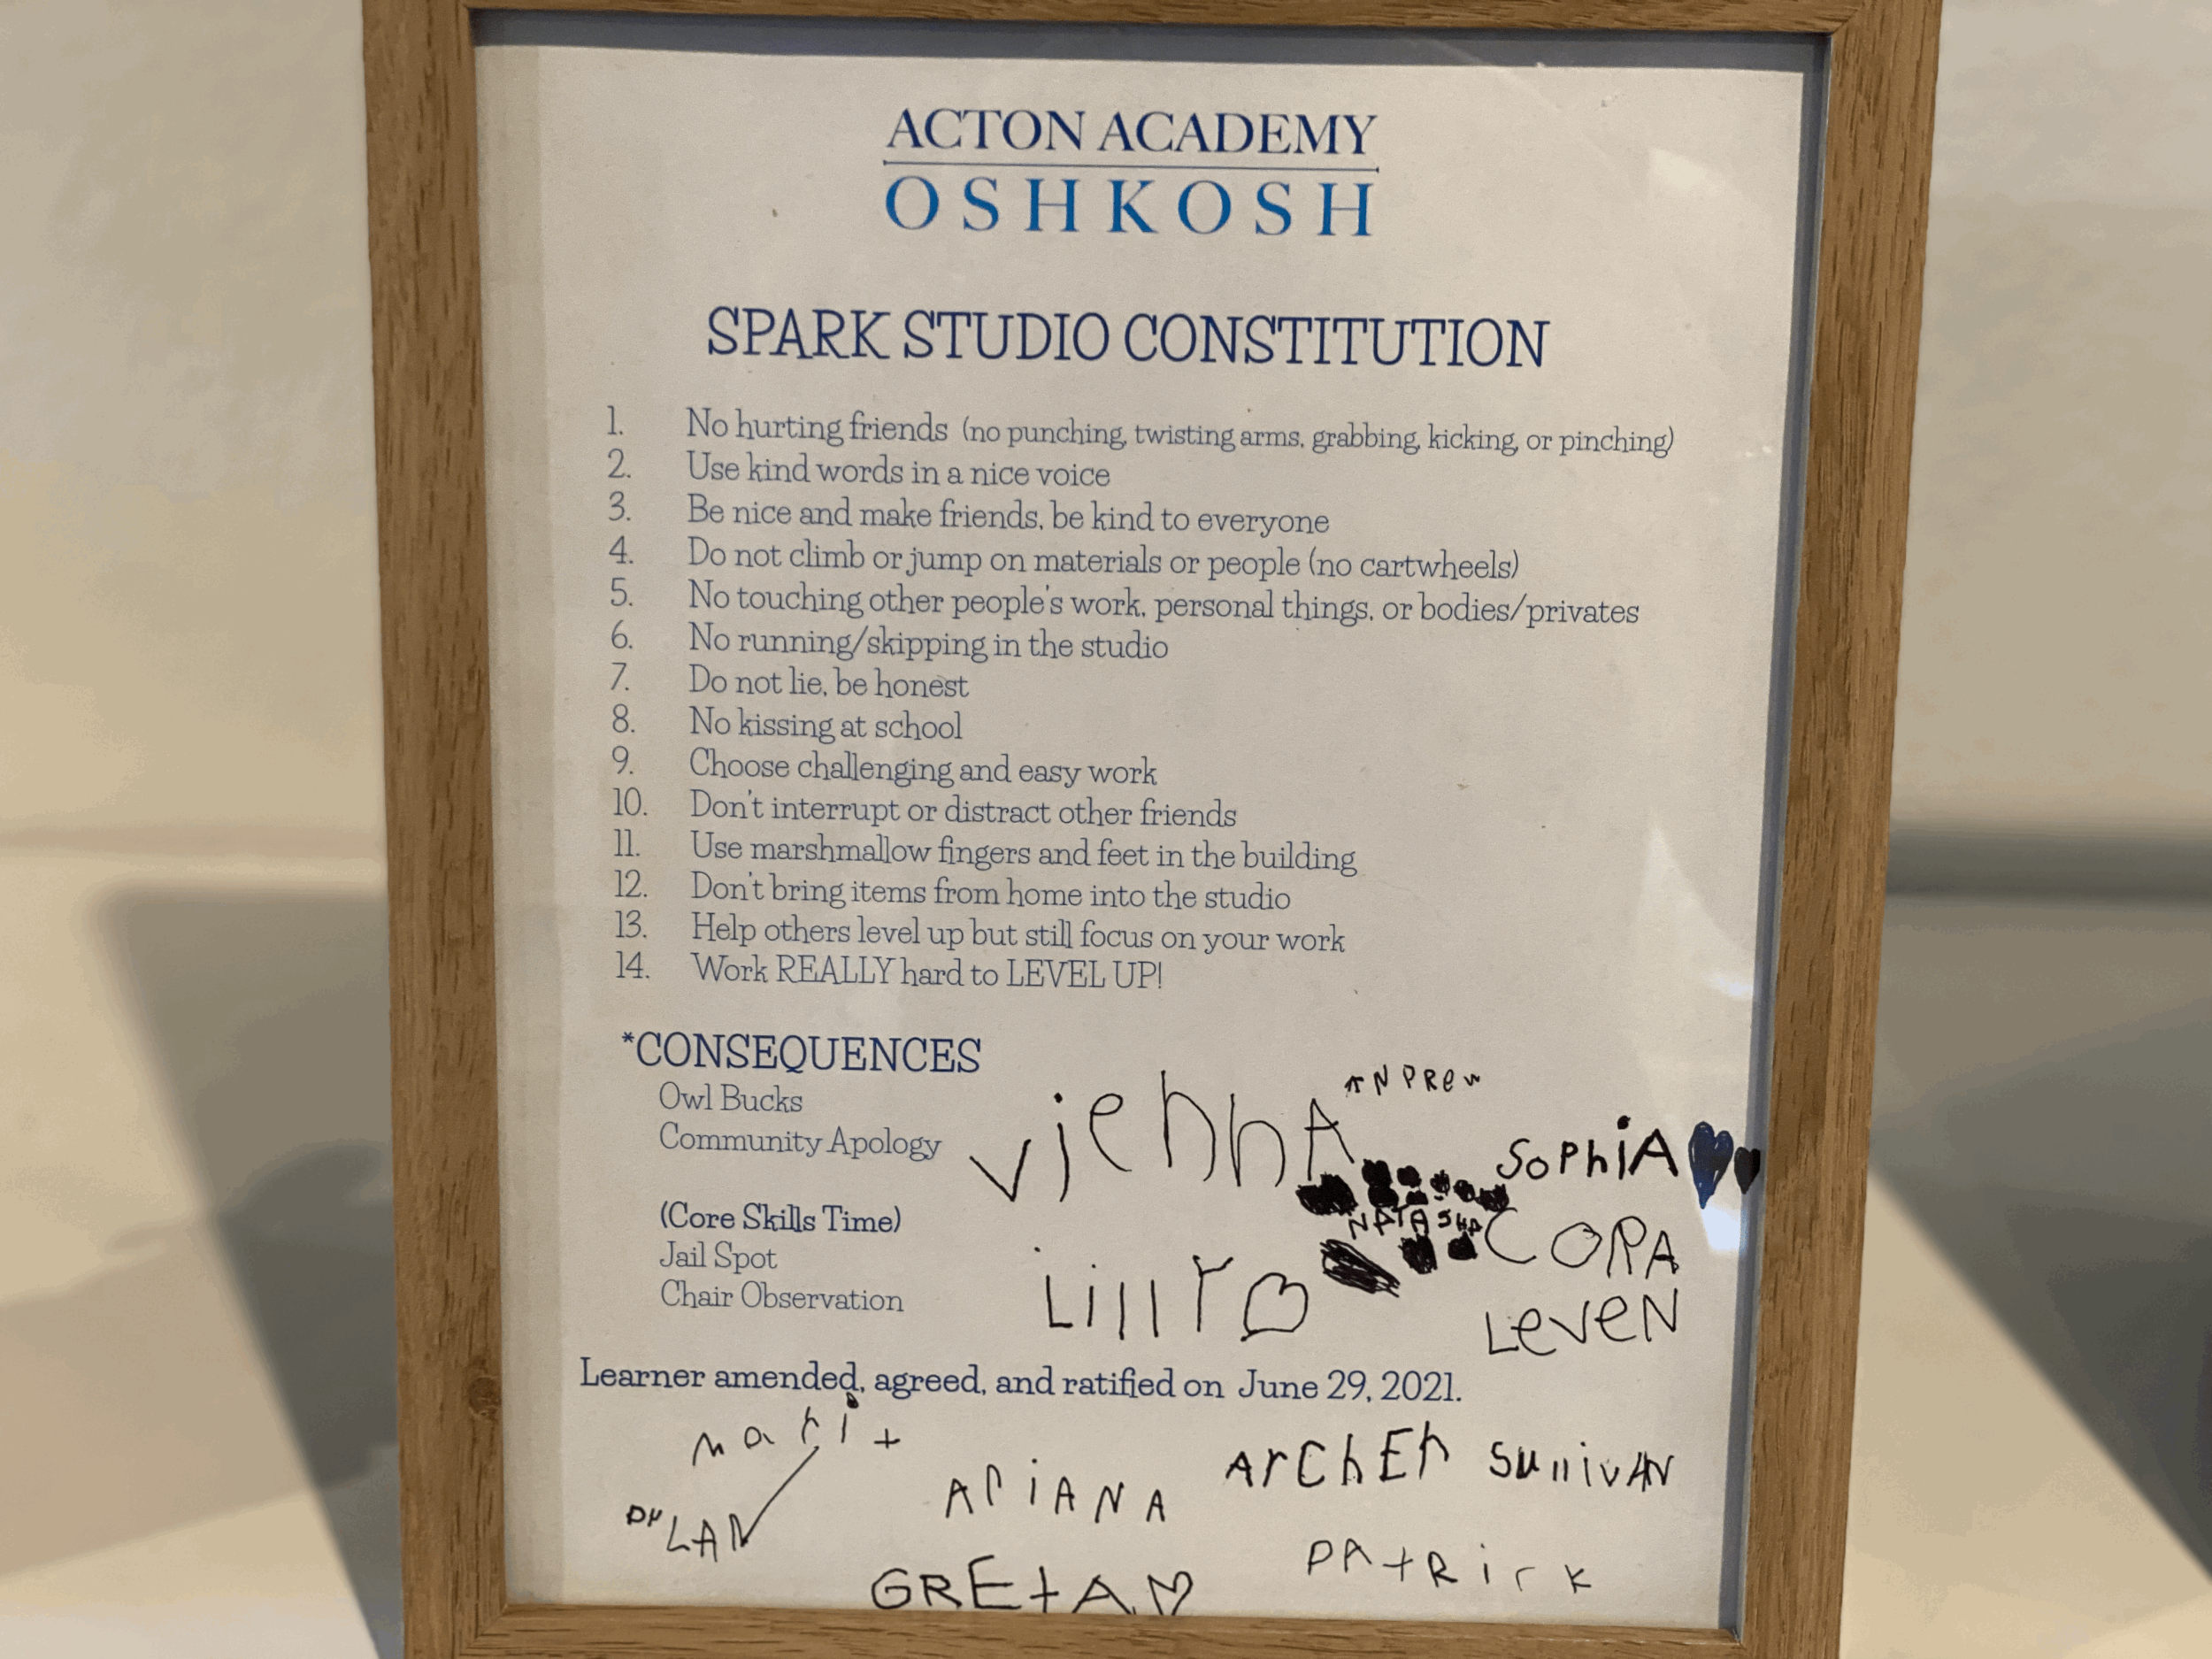 ACTON ACADEMY
OSHKOSH
SPARK STUDIO CONSTITUTION
1. No hurting friends (no punching, twisting arms, grabbing, kicking, or pinching)
2. Use kind words in a nice voice
3. Be nice and make friends, be kind to everyone
4. Do not climb or jump on materials or people (no cartwheels)
5. No touching other people's work, personal things, or bodies/privates
6. No running/skipping in the studio
7. Do not lie, be honest
8. No kissing at school
9. Choose challenging and easy work
10. Don't interrupt or distract other friends
11. Use marshmallow fingers and feet in the building
12. Don't bring items from home into the studio
13. Help others level up but still focus on your work
14. Work REALLY hard to LEVEL UP!
*CONSEQUENCES
Owl Bucks
Community Apology
(Core Skills Time)
Jail Spot
Chair Observation
ANDRew
viennA
SoPhiA
NATASHA
CORA
LillY
LeveN
Learner amended, agreed, and ratified on June 29, 2021.
marit
ArChEr
SullivAN
ARiANA
DyLAN
PAtRick
GREtA